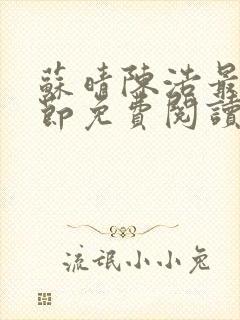 蘇晴陳浩最
節免費閱讀
流氓小小兔